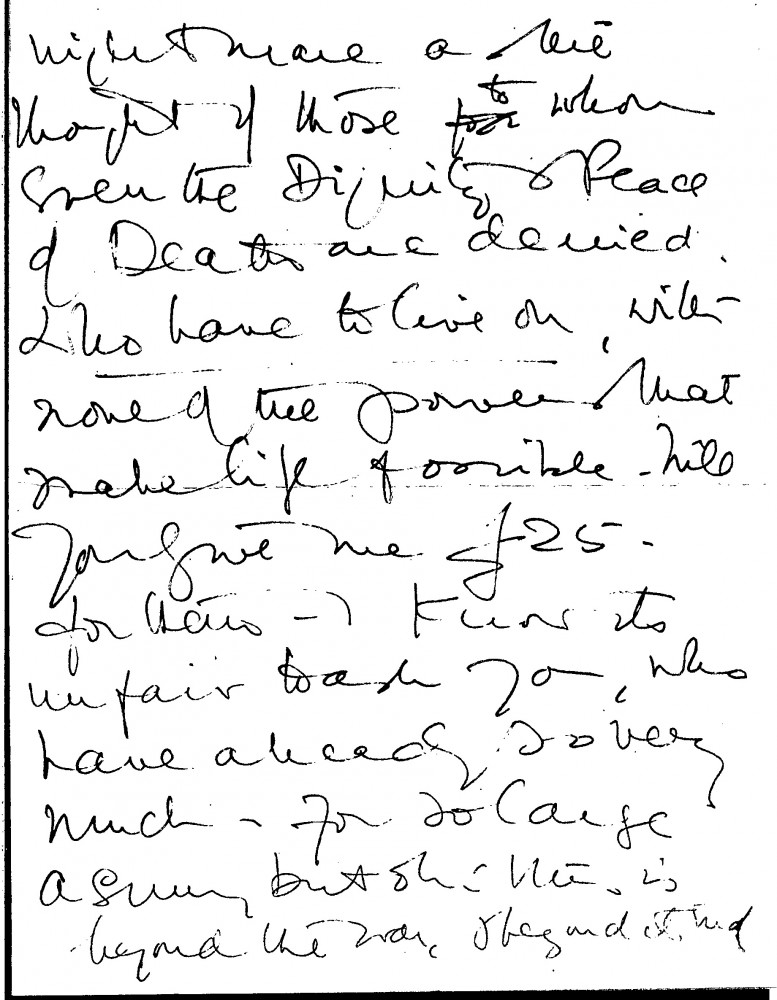 nightmare a
thought of those for to whom
even the Dignity & Peace
of Death are denied.
& who have to live on, with
none of the powers that
make life possible - Will
you give me £25.
for this - I know its
unfair to ask you, who
have already so very
much - for so large
a sum, but oh - this is
beyond the war, & beyond it, and